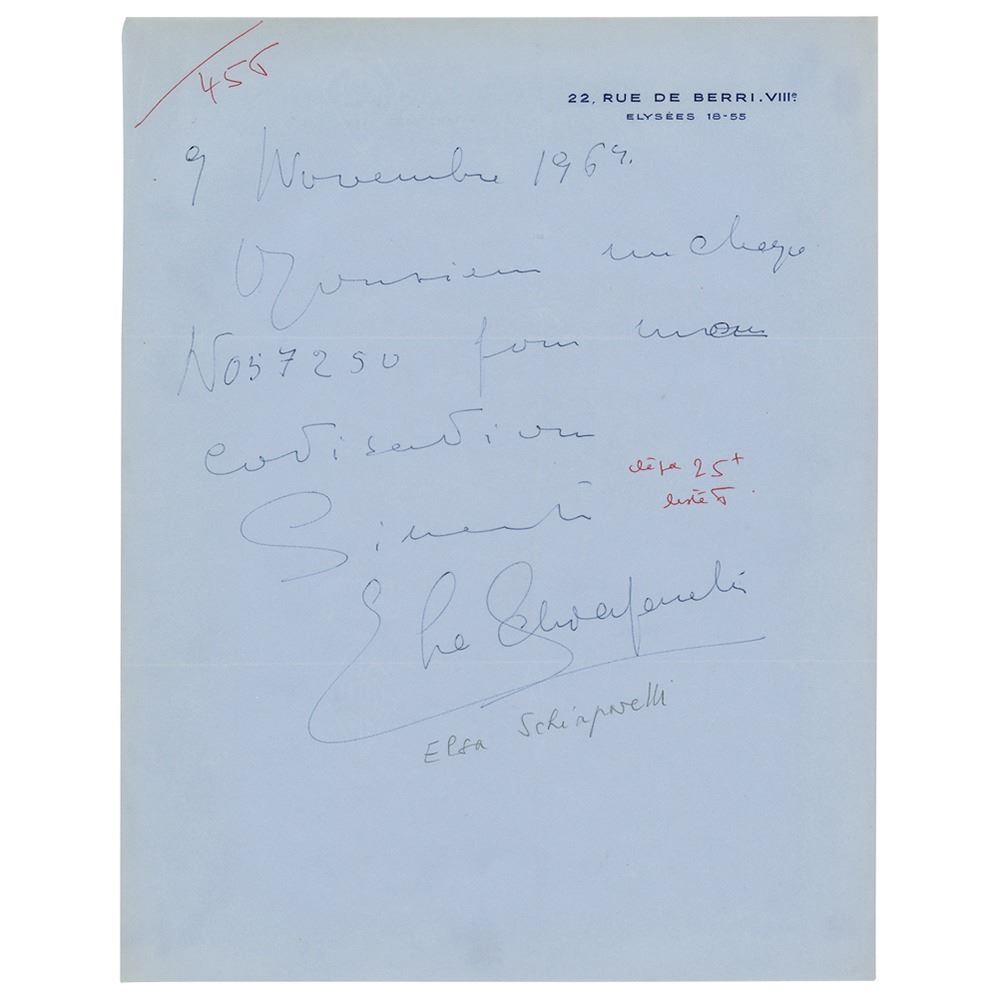 455
22, RUE DE BERRI. VIIIe
ELYSÉES 18-55
9 Novembre 1969.
Monsieur un cheque
No 57250 pour ma
cotisation
déjà 25+
liste
Elsa Schiaparelli
Elsa Schiaparelli